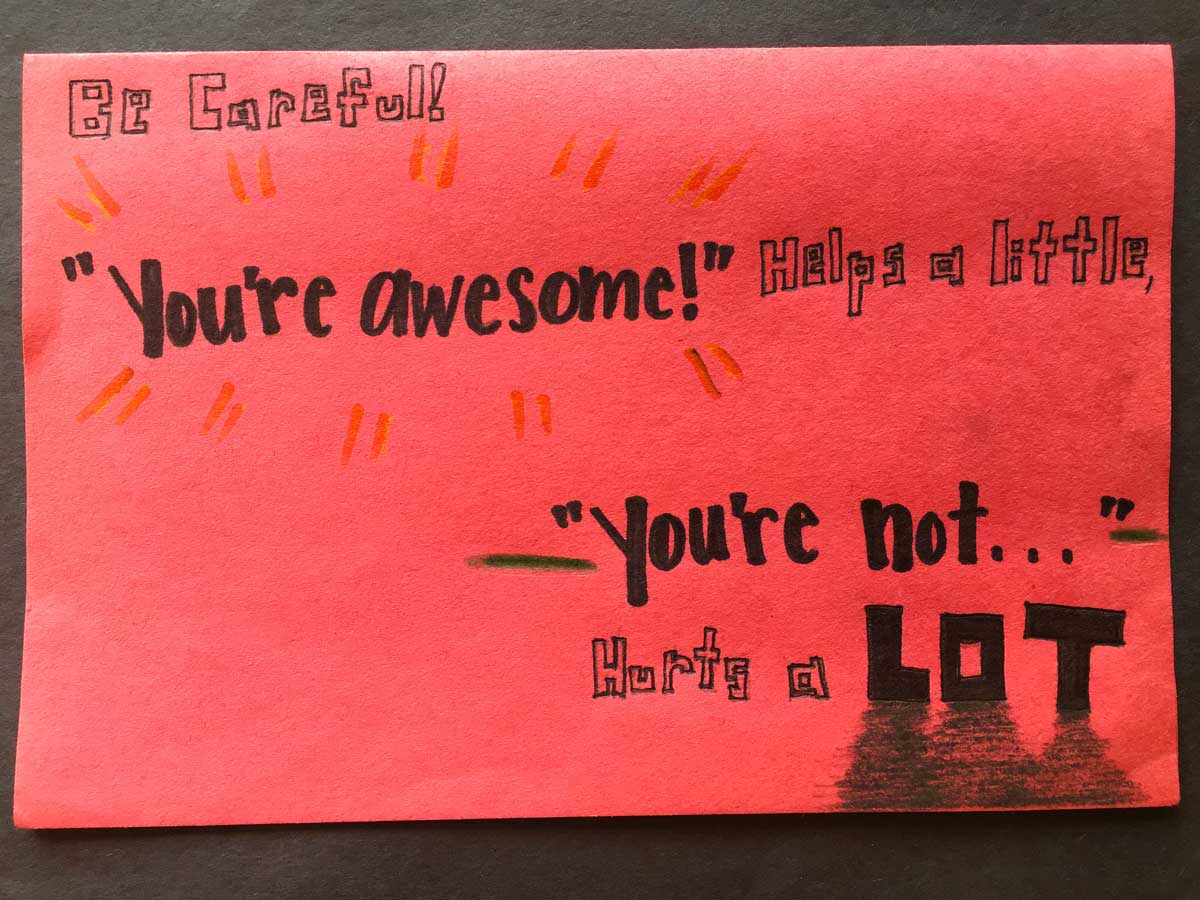 Be Careful!
"You're awesome!" Helps a little,
"You're not..."
Hurts a LOT